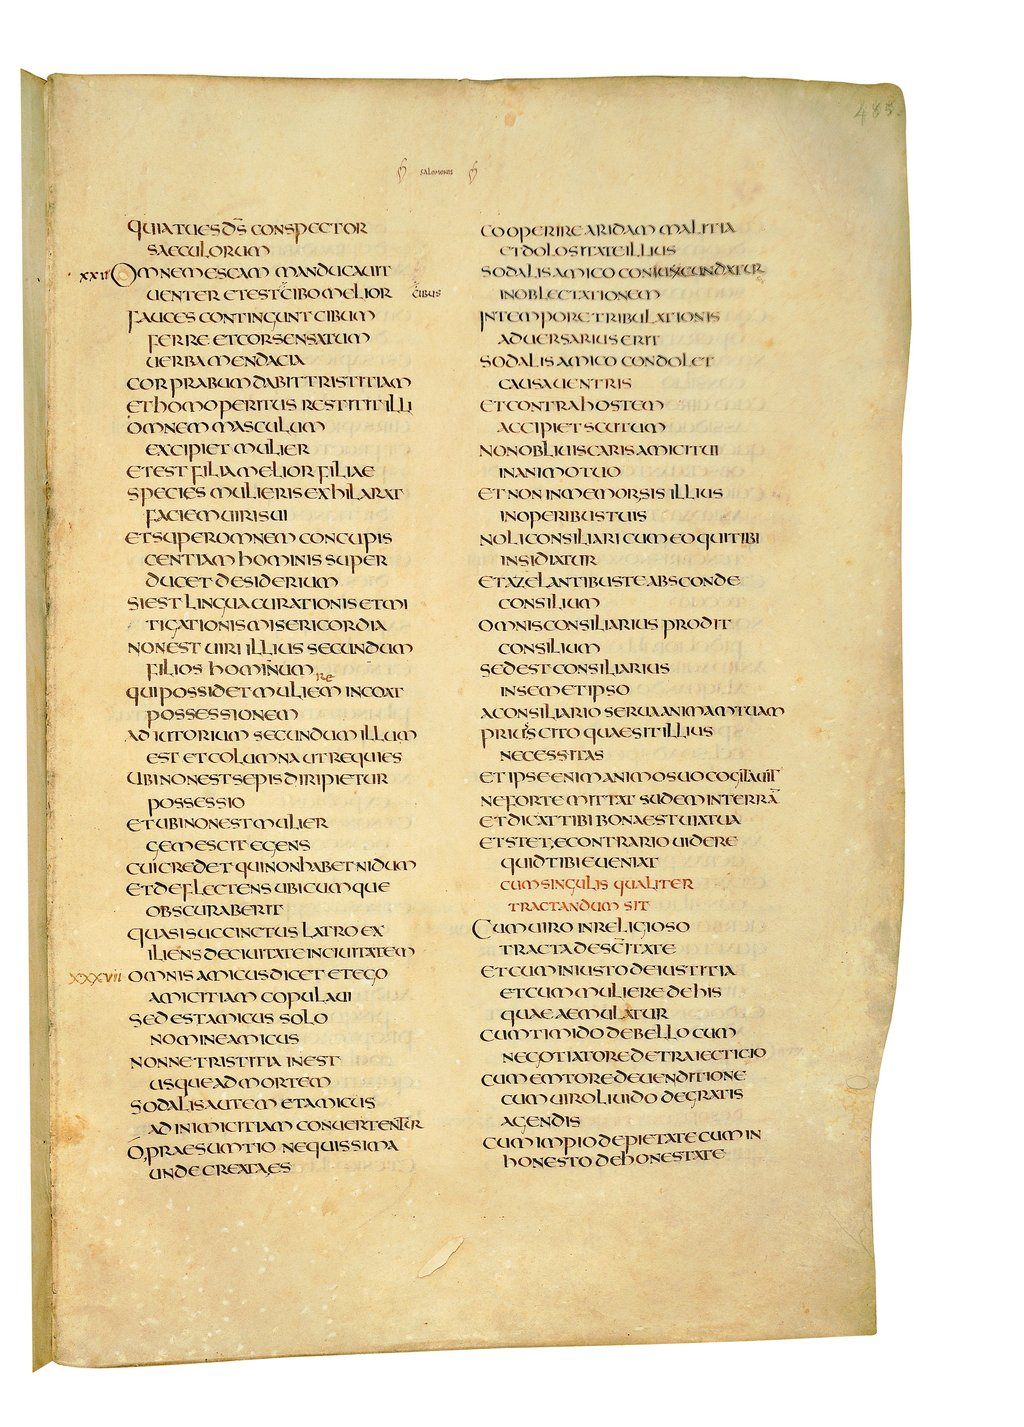 485.
SALOMONIS
QUIA TU ES D̄S CONSPECTOR
SAECULORUM
XXII OMNEM ESCAM MANDUCAUIT
UENTER ET EST CIBO MELIOR CIBUS
FAUCES CONTINGUNT CIBUM
FERRE ET COR SENSATUM
UERBA MENDACIA
COR PRABUM DABIT TRISTITIAM
ET HOMO PERITUS RESTITIT ILLI
OMNEM MASCULUM
EXCIPIET MULIER
ET EST FILIA MELIOR FILIAE
SPECIES MULIERIS EXHILARAT
FACIEM UIRI SUI
ET SUPER OMNEM CONCUPIS
CENTIAM HOMINIS SUPER
DUCET DESIDERIUM
SI EST LINGUA CURATIONIS ET MI
TIGATIONIS MISERICORDIA
NON EST UIRI ILLIUS SECUNDUM
FILIOS HOMINUM
QUI POSSIDET MULIEREM INCOAT
POSSESSIONEM
ADIUTORIUM SECUNDUM ILLUM
EST ET COLUMNA UT REQUIES
UBI NON EST SEPIS DIRIPIETUR
POSSESSIO
ET UBI NON EST MULIER
GEMESCIT EGENS
CUI CREDET QUI NON HABET NIDUM
ET DEFLECTENS UBICUMQUE
OBSCURABERIT
QUASI SUCCINCTUS LATRO EX
ILIENS DE CIUITATE IN CIUITATEM
XXXVII OMNIS AMICUS DICET ET EGO
AMICITIAM COPULAUI
SED EST AMICUS SOLO
NOMINE AMICUS
NONNE TRISTITIA INEST
USQUE AD MORTEM
SODALIS AUTEM ET AMICUS
AD INIMICITIAM CONUERTENTUR
O PRAESUMTIO NEQUISSIMA
UNDE CREATA ES
COOPERIRE ARIDAM MALITIA
ET DOLOSITATE ILLIUS
SODALIS AMICO CONIUCUNDATUR
IN OBLECTATIONEM
IN TEMPORE TRIBULATIONIS
ADUERSARIUS ERIT
SODALIS AMICO CONDOLET
CAUSA UENTRIS
ET CONTRA HOSTEM
ACCIPIET SCUTUM
NON OBLIUISCARIS AMICI TUI
IN ANIMO TUO
ET NON INMEMOR SIS ILLIUS
IN OPERIBUS TUIS
NOLI CONSILIARI CUM EO QUI TIBI
INSIDIATUR
ET A ZELANTIBUS TE ABSCONDE
CONSILIUM
OMNIS CONSILIARIUS PRODIT
CONSILIUM
SED EST CONSILIARIUS
IN SEMETIPSO
A CONSILIARIO SERUA ANIMAM TUAM
PRIUS CITO QUAE SIT ILLIUS
NECESSITAS
ET IPSE ENIM ANIMO SUO COGITAUIT
NE FORTE MITTAT SUDEM IN TERRĀ
ET DICAT TIBI BONA EST UIA TUA
ET STET E CONTRARIO UIDERE
QUID TIBI EUENIAT
CUM SINGULIS QUALITER
TRACTANDUM SIT
CUM UIRO INRELIGIOSO
TRACTA DE SC̄ITATE
ET CUM INIUSTO DE IUSTITIA
ET CUM MULIERE DE HIS
QUAE AEMULATUR
CUM TIMIDO DE BELLO CUM
NEGOTIATORE DE TRAIECTICIO
CUM EMTORE DE UENDITIONE
CUM UIRO LIUIDO DE GRATIS
AGENDIS
CUM IMPIO DE PIETATE CUM IN
HONESTO DE HONESTATE